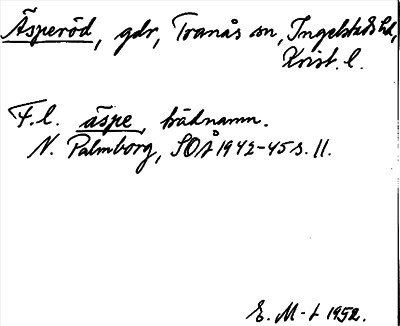 Äsperöd, gdr, Tranås sn, Ingelstads hd,
Krist. l.
F.l. äspe, trädnamn.
N. Palmborg, SOÅ 1942-45 s. 11.
E. M-t 1952.